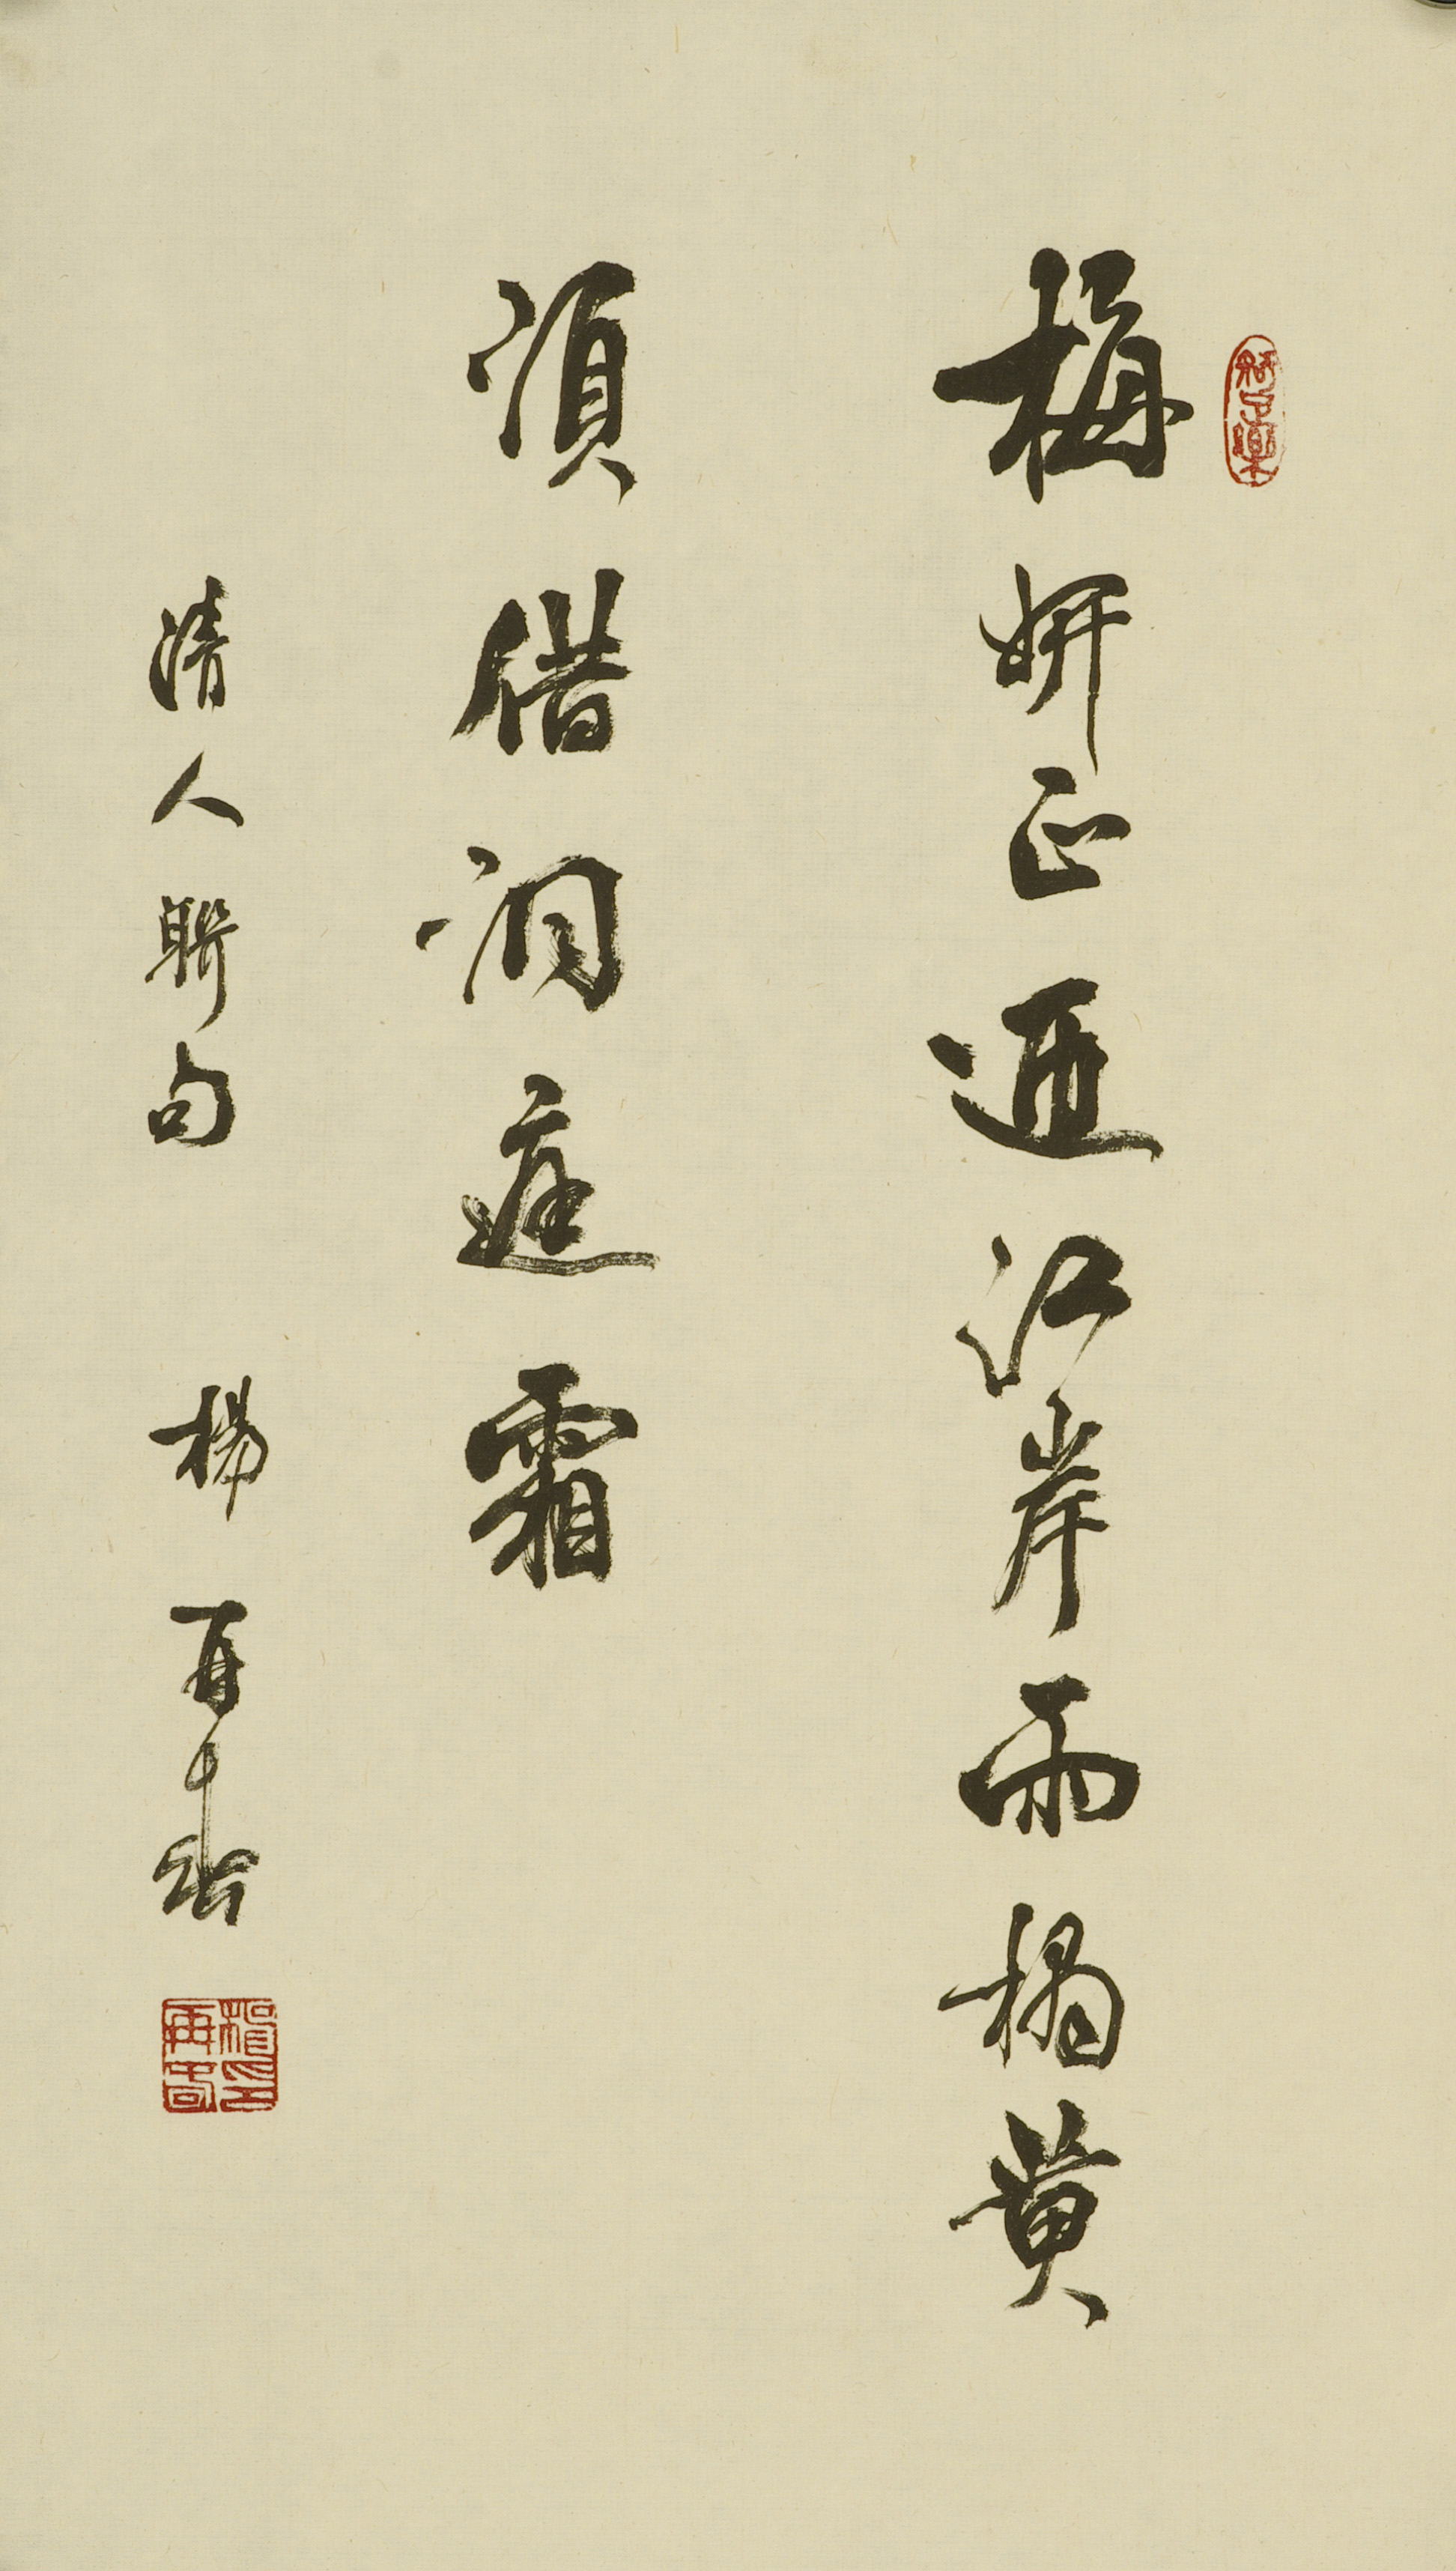 梅妍正迺江岸雨橘黄
須借洞庭霜
清人聯句 楊再春
楊印再春